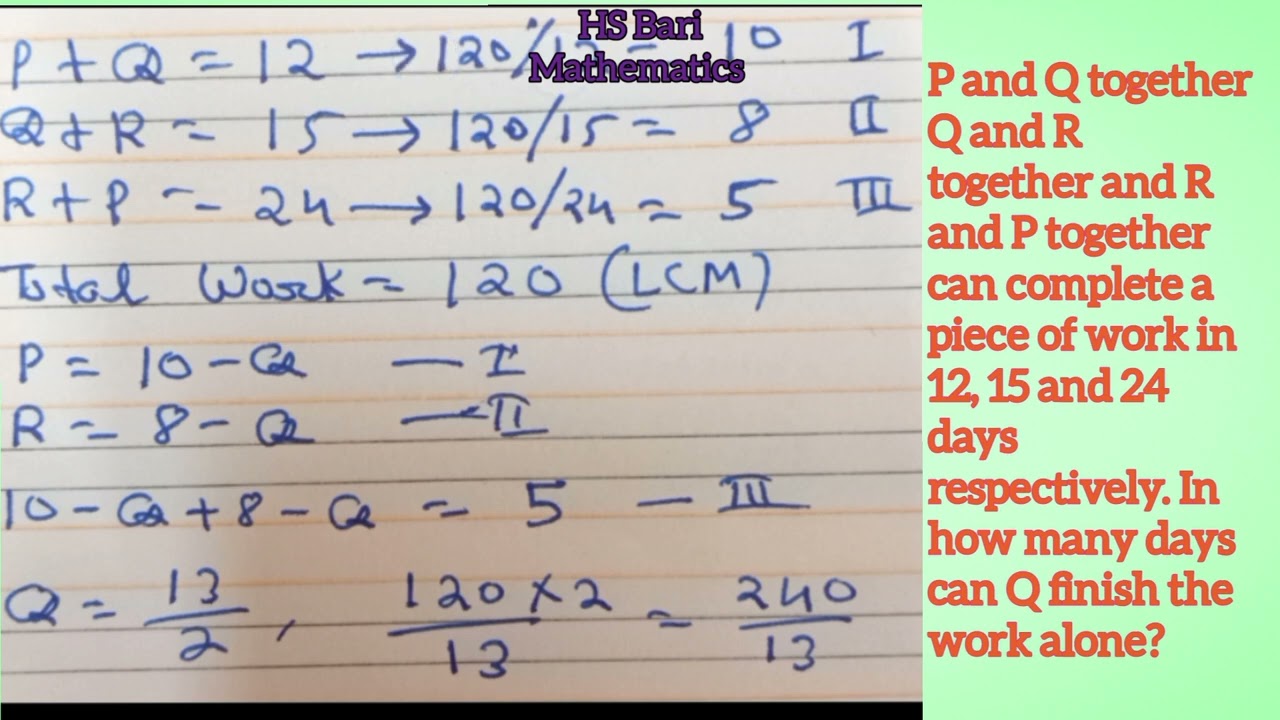 HS Bari
Mathematics
P + Q = 12 → 120/12 = 10 I
Q + R = 15 → 120/15 = 8 II
R + P = 24 → 120/24 = 5 III
Total Work = 120 (LCM)
P = 10 - Q — I
R = 8 - Q — II
10 - Q + 8 - Q = 5 — III
Q = 13/2 , 120 × 2/13 = 240/13
P and Q together
Q and R
together and R
and P together
can complete a
piece of work in
12, 15 and 24
days
respectively. In
how many days
can Q finish the
work alone?